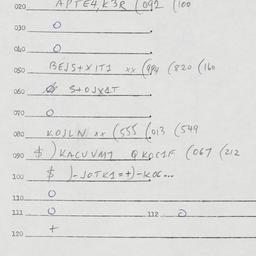 020 APTE4,K3R (092 (100
030 O
040 O
050 BEJS+XIT1 xx (994 (820 (160
060 S+OJX1T
070 O
080 KOJLN xx (555 (013 (549
090 $ )KACUVM1 QKOC1F (067 (212
100 $ )-JOTK1=+)-KOC...
110 O
111 O 112 O
120 +